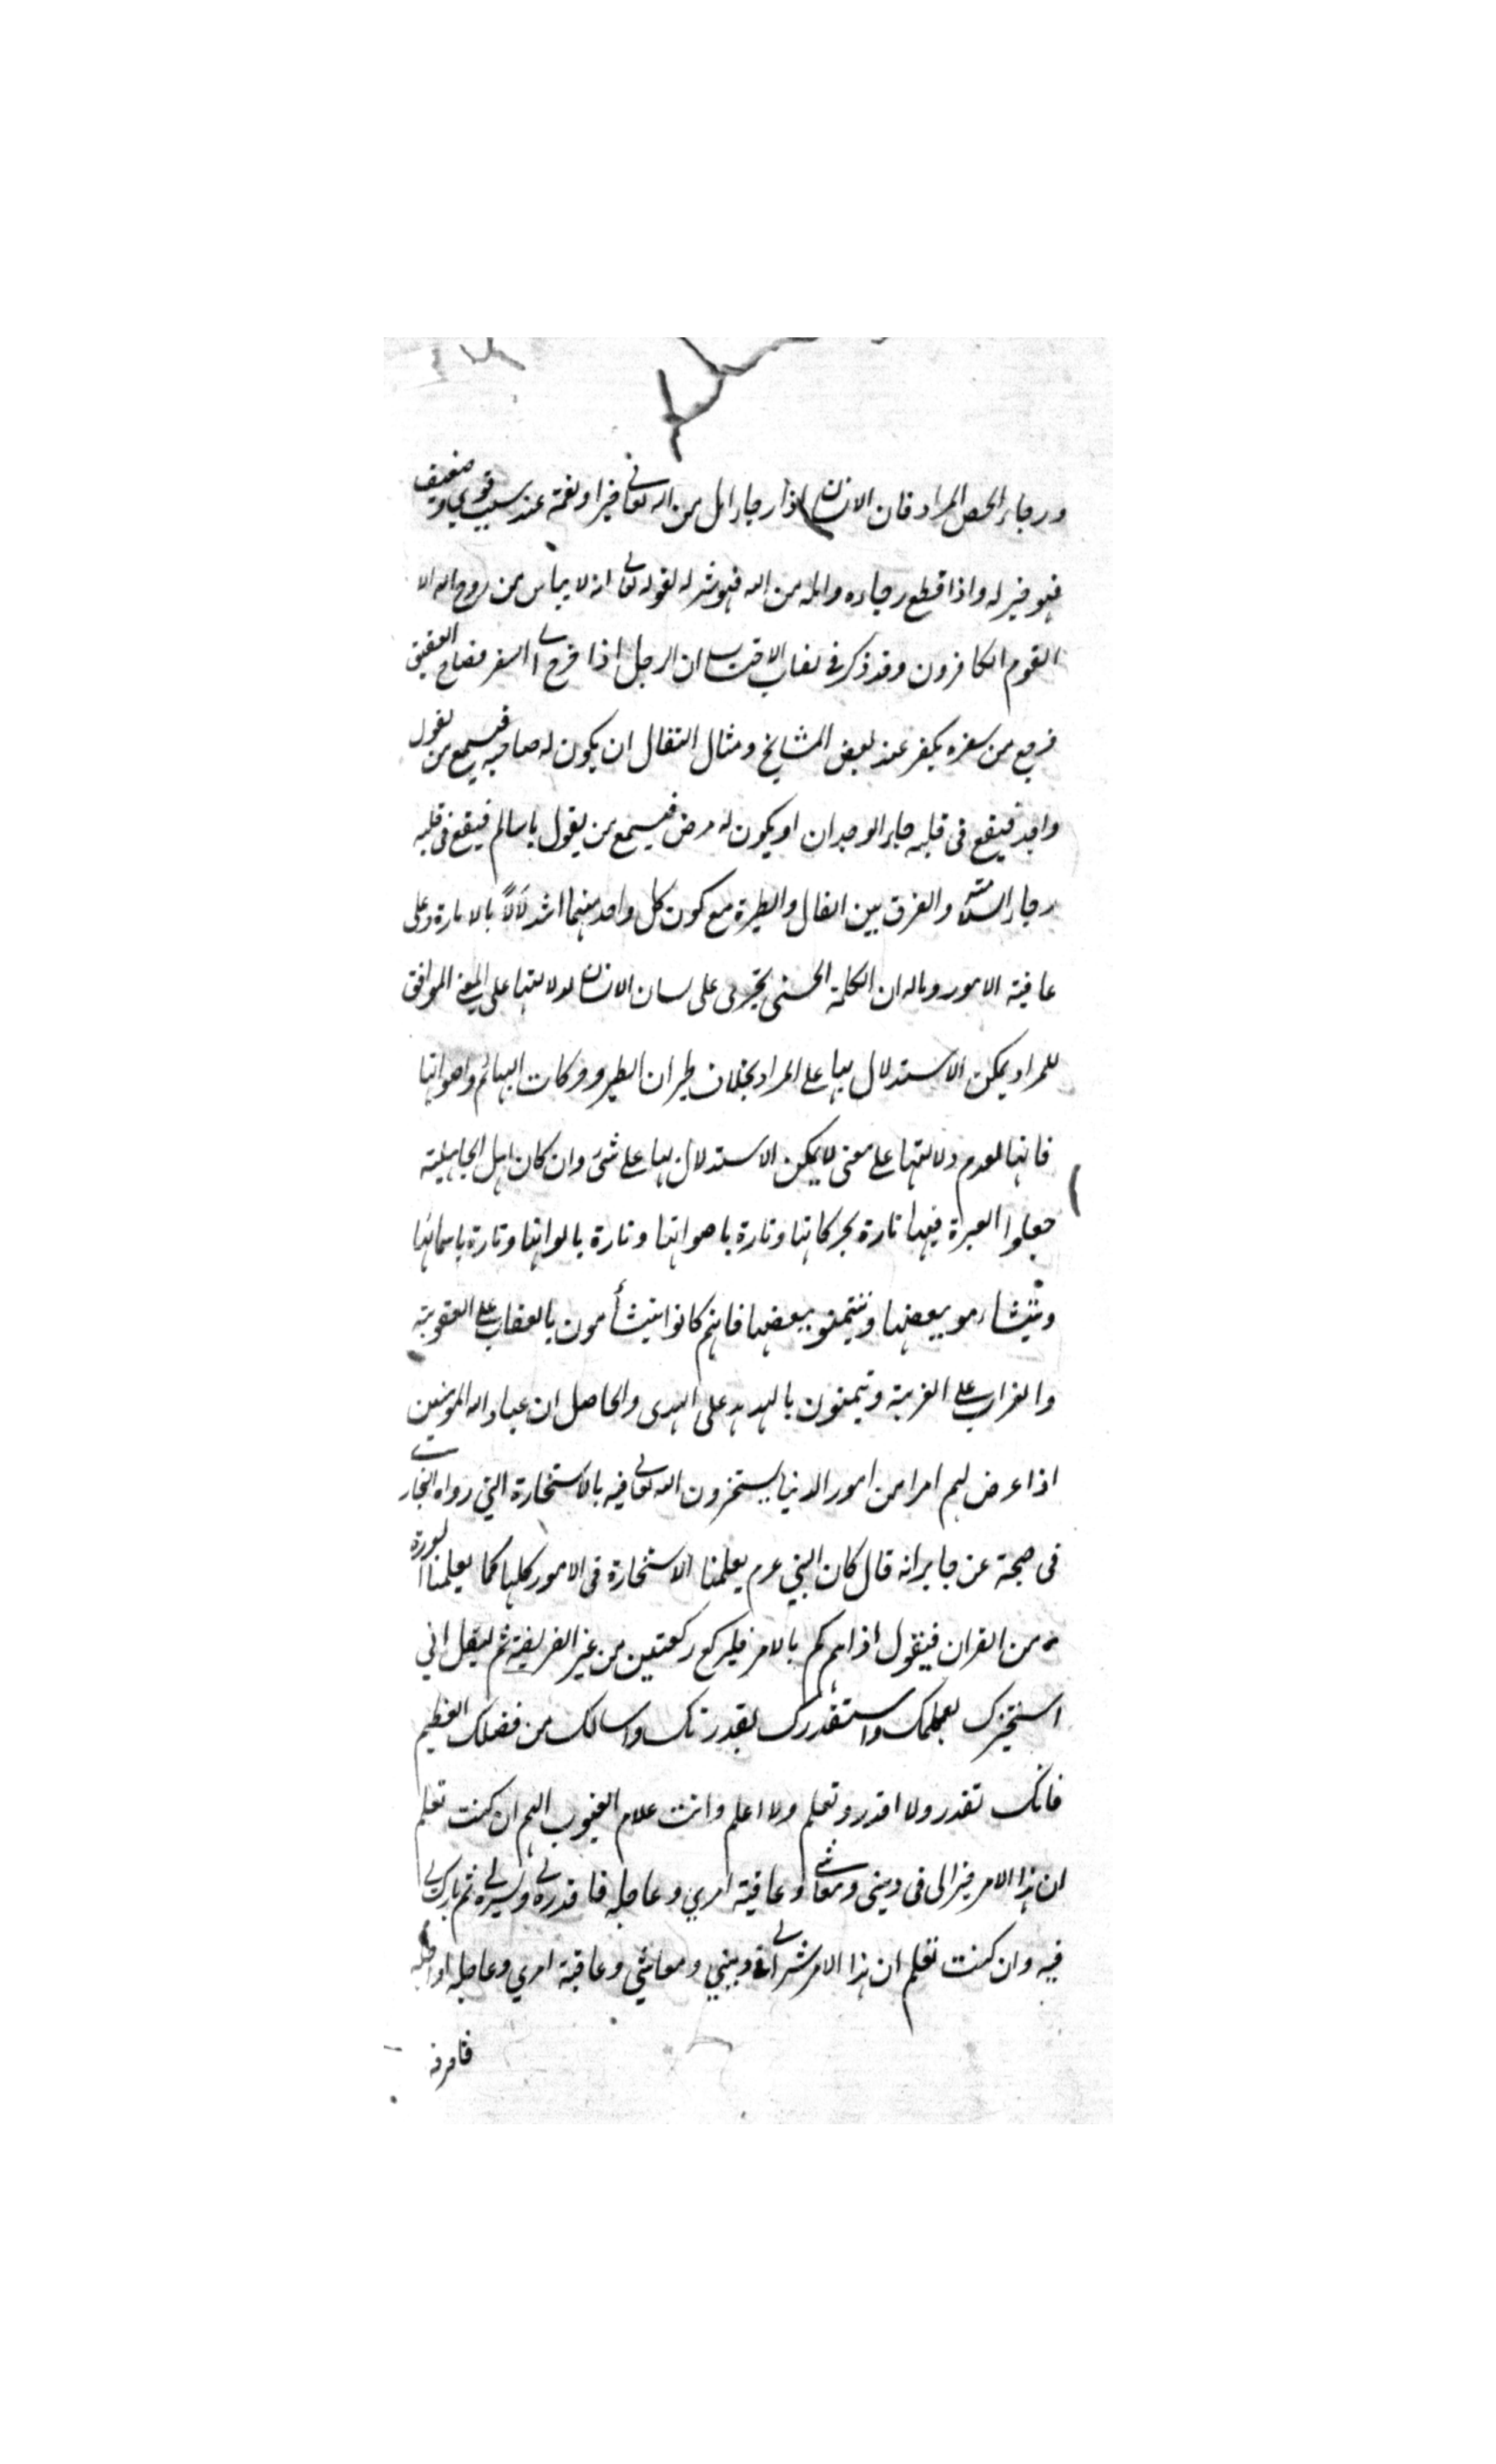 ورجاء لحصل المراد فان الانسان اذا رجا وامل من الله تعالى خيرا ونعمة عند سبب قوي وضعيف
فهو خير له واذا قطع رجاءه وامله من الله فهو شر له لقوله تعالى انه لا ييأس من روح الله الا
القوم الكافرون وقد ذكر في نصاب الاحتساب ان الرجل اذا خرج الى السفر فصاح العقيق
فرجع من سفره يكفر عند بعض المشايخ ومثال التفال ان يكون له صاحبه فيسمع من يقول
واجد فيقع في قلبه رجاء الوجدان او يكون له مرض فيسمع من يقول يا سالم فيقع في قلبه
رجاء السلامة والفرق بين الفال والطيرة مع كون كل واحد منهما استدلالا بالامارة وعلى
عاقبة الامور وماله ان الكلمة الحسنى تجرى على لسان الانسان لدلالتها على المعنى الموافق
للمراد يمكن الاستدلال بها على المراد بخلاف طيران الطير وحركات البهائم واصواتها
فانها لعدم دلالتها على معنى لا يمكن الاستدلال بها على شئ وان كان اهل الجاهلية
جعلوا العبرة فيها تارة بحركاتها وتارة باصواتها وتارة بالوانها وتارة باسمائها
ويتشاءمو ببعضها ويتيمنو ببعضها فانهم كانوا يتشأمون بالعقاب على العقوبة
والغراب على الغربة ويتيمنون بالهدهد على الهدى والحاصل ان عباد الله المؤمنين
اذا عرض لهم امرا من امور الدنيا يستخيرون الله تعالى فيه بالاستخارة التي رواه البخارى
في صحيحه عن جابر انه قال كان النبي عم يعلمنا الاستخارة في الامور كلها كما يعلمنا السورة
من القران فيقول اذا هم كم بالامر فليركع ركعتين من غير الفريضة ثم ليقل اني
استخيرك بعلمك واستقدرك بقدرتك واسالك من فضلك العظيم
فانك تقدر ولا اقدر وتعلم ولا اعلم وانت علام الغيوب اللهم ان كنت تعلم
ان هذا الامر خيرا لى في دينى ومعاشي وعاقبة امري وعاجله فاقدره لي ويسره لي ثم بارك لي
فيه وان كنت تعلم ان هذا الامر شر لي في ديني ومعاشي وعاقبة امري وعاجله اواجله
فاصرفه